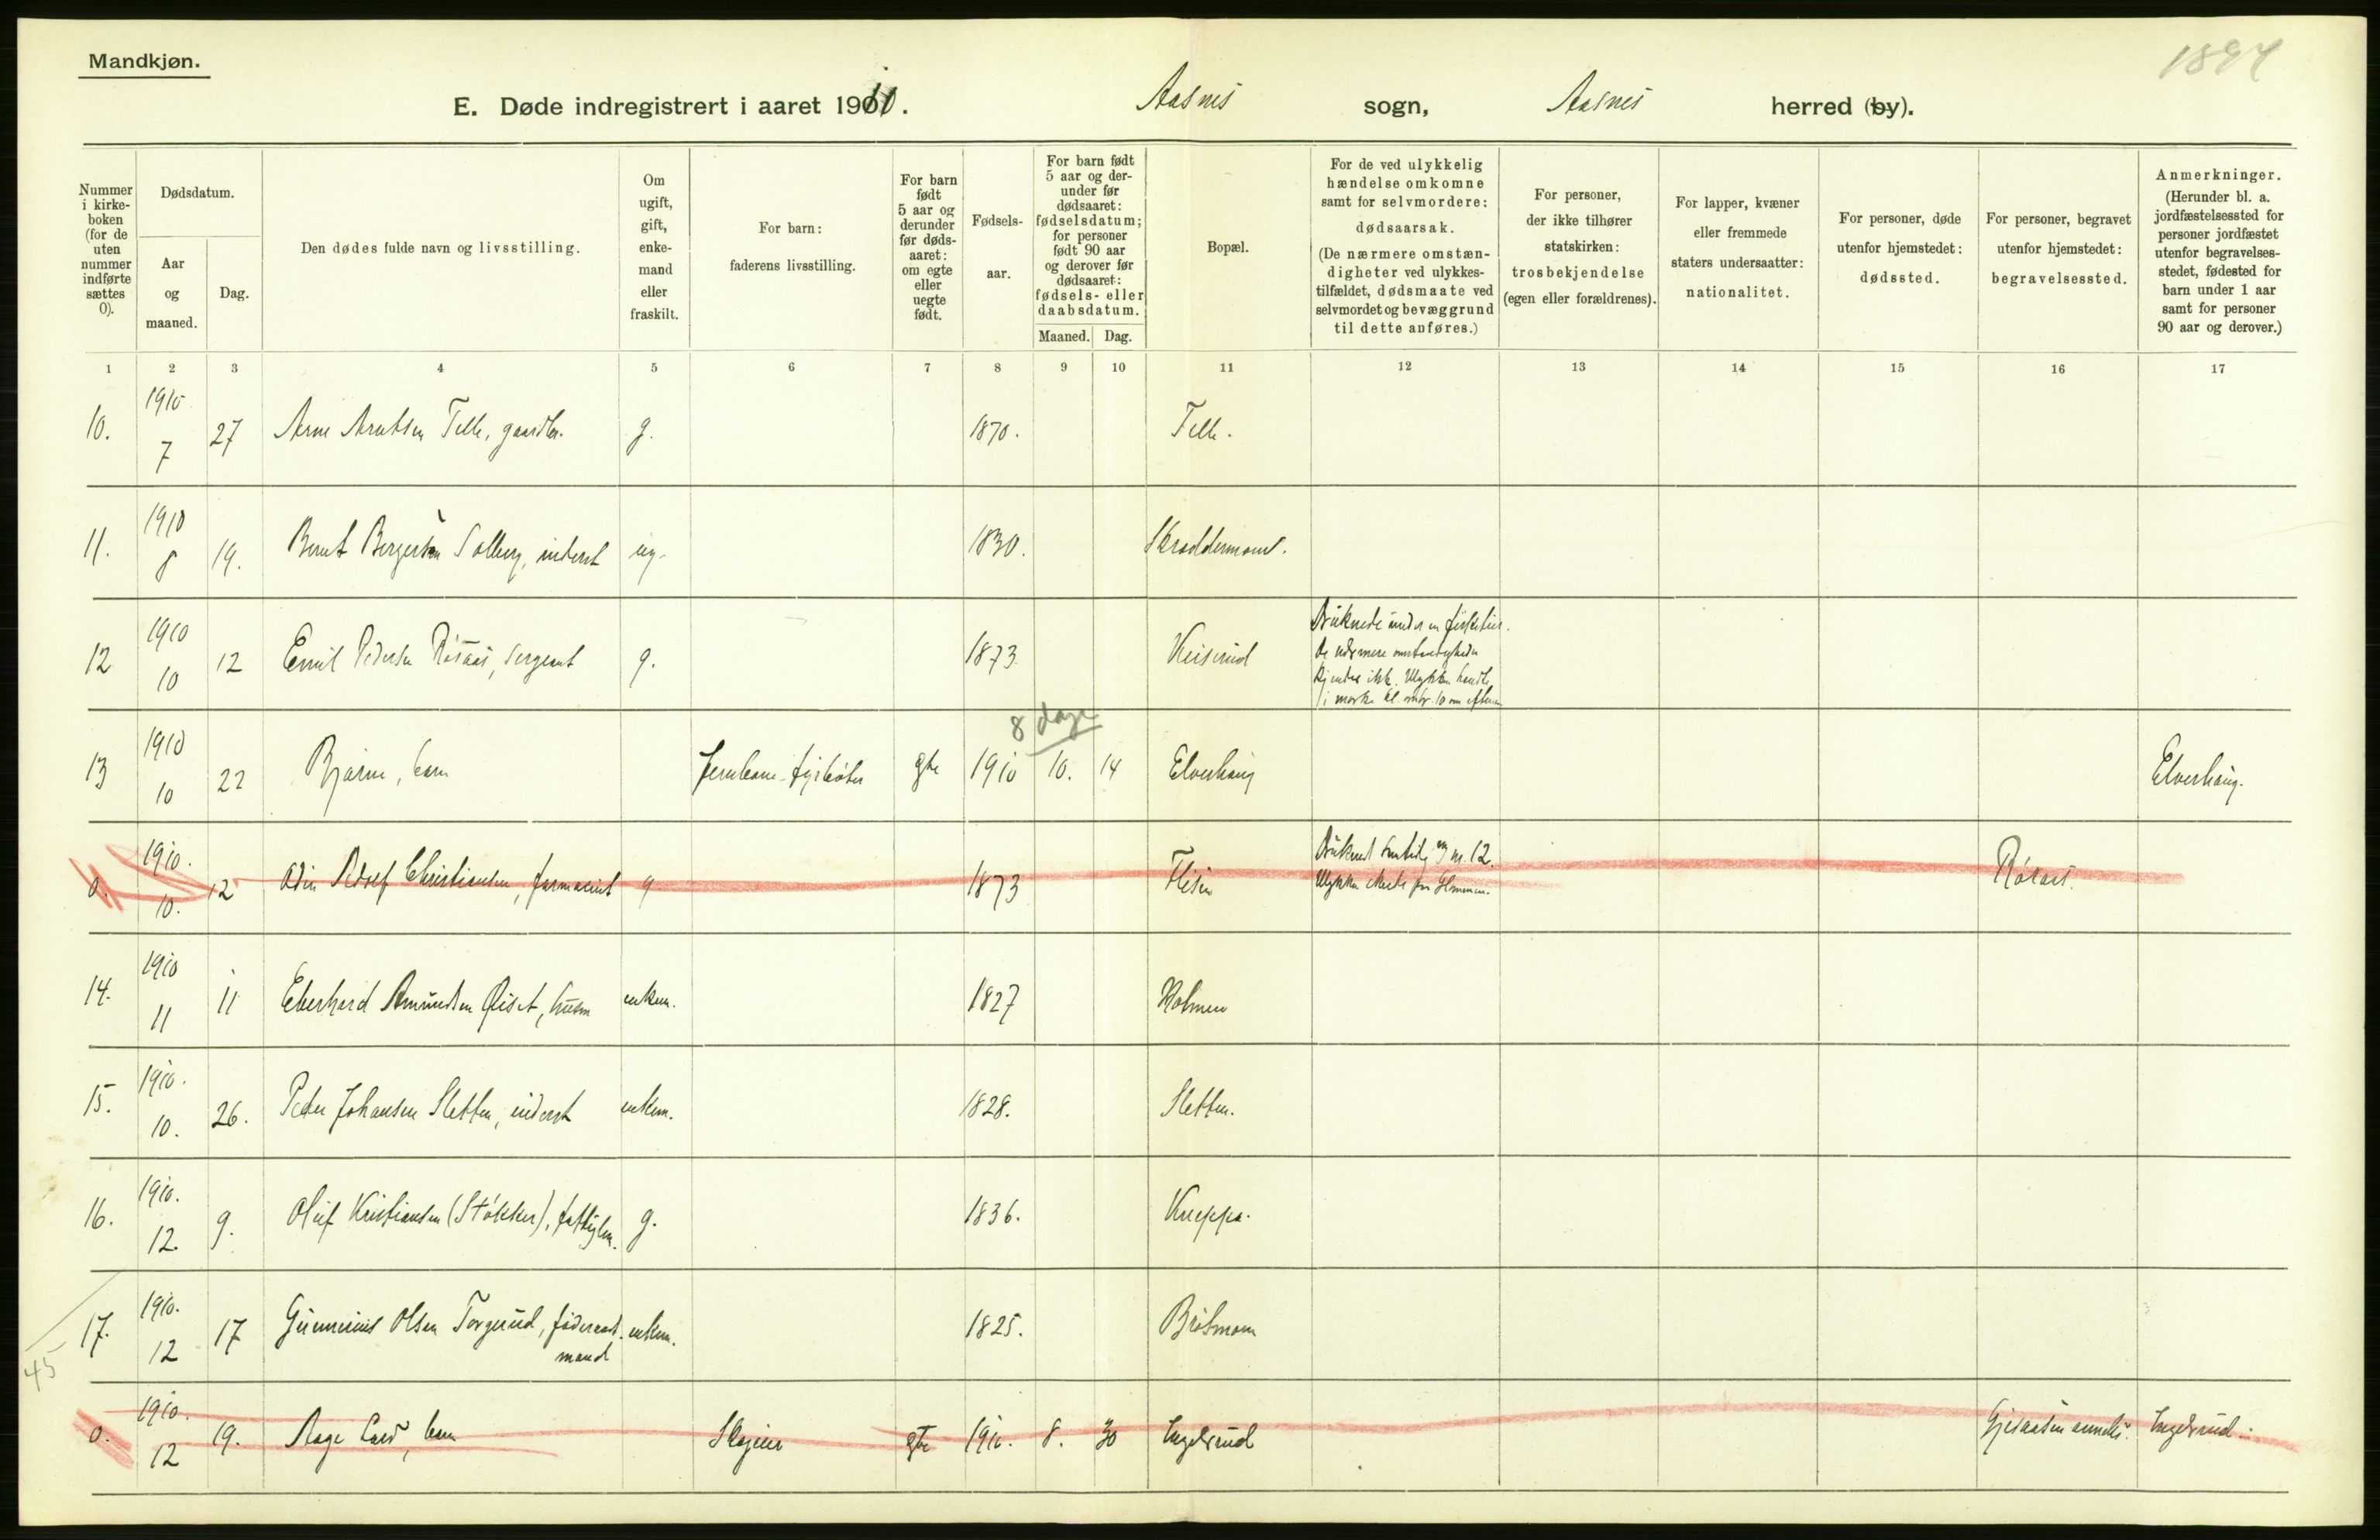 Mandkjøn.
1894
E. Døde indregistrert i aaret 1910. Aasnes sogn, Aasnes herred (by).
Nummer i kirke-boken (for de uten nummer indførte sættes 0).
Dødsdatum.
Aar og maaned.
Dag.
Den dødes fulde navn og livsstilling.
Om ugift, gift, enke-mand eller fraskilt.
For barn: faderens livsstilling.
For barn født 5 aar og derunder før døds-aaret: om egte eller uegte født.
Fødsels-aar.
For barn født 5 aar og der-under før dødsaaret: fødselsdatum; for personer født 90 aar og derover før dødsaaret: fødsels- eller daabsdatum.
Maaned. Dag.
Bopæl.
For de ved ulykkelig hændelse omkomne samt for selvmordere: dødsaarsak.
(De nærmere omstæn-digheter ved ulykkes-tilfældet, dødsmaate ved selvmordet og bevæggrund til dette anføres.)
For personer, der ikke tilhører statskirken: trosbekjendelse (egen eller forældrenes).
For lapper, kvæner eller fremmede staters undersaatter: nationalitet.
For personer, døde utenfor hjemstedet: dødssted.
For personer, begravet utenfor hjemstedet: begravelsessted.
Anmerkninger.
(Herunder bl. a. jordfæstelsessted for personer jordfæstet utenfor begravelses-stedet, fødested for barn under 1 aar samt for personer 90 aar og derover.)
1 2 3 4 5 6 7 8 9 10 11 12 13 14 15 16 17
10. 1910 7 27 Arne Telle, gaardbr. g. 1870. Telle.
11. 1910 8 19. Bernt Bergersen Solberg, inderst ug. 1830. Skraddermoen.
12 1910 10 12 Emil Pedersen Røsaas, sergeant g. 1873. Keiserud
Druknede under en fisketur.
De nærmere omstændigheder
kjendes ikke. Ulykken hændte
i mørke kl. omtr. 10 om efterm.
8 dage
13 1910 10 22 Bjarne, barn Jernbane-fyrbøter egte 1910 10. 14 Elverhaug Elverhaug.
0. 1910. 10. 12 Odin Adolf Christiansen, farmaceut g 1873 Flisen
Druknet samtidig m nr. 12.
Ulykken skede paa Glommen.
Røraas.
14. 1910 11 11 Eberhard Amundsen Øiset, husm enkem. 1827 Holmen
15. 1910. 10. 26. Peder Johansen Sletten, inderst enkem. 1828. Sletten.
16. 1910. 12. 9. Oluf Kristiansen (Støkker), fattiglem. g. 1836. Kneppa.
17. 1910. 12 17 Gunnerius Olsen Torgerud, føderaads-mand enkem. 1825. Bråtmoen
45
0. 1910. 12 19. Aage barn egte 1910. 8. 30 Engelsrud Gjesaasen anneks. Engelsrud.